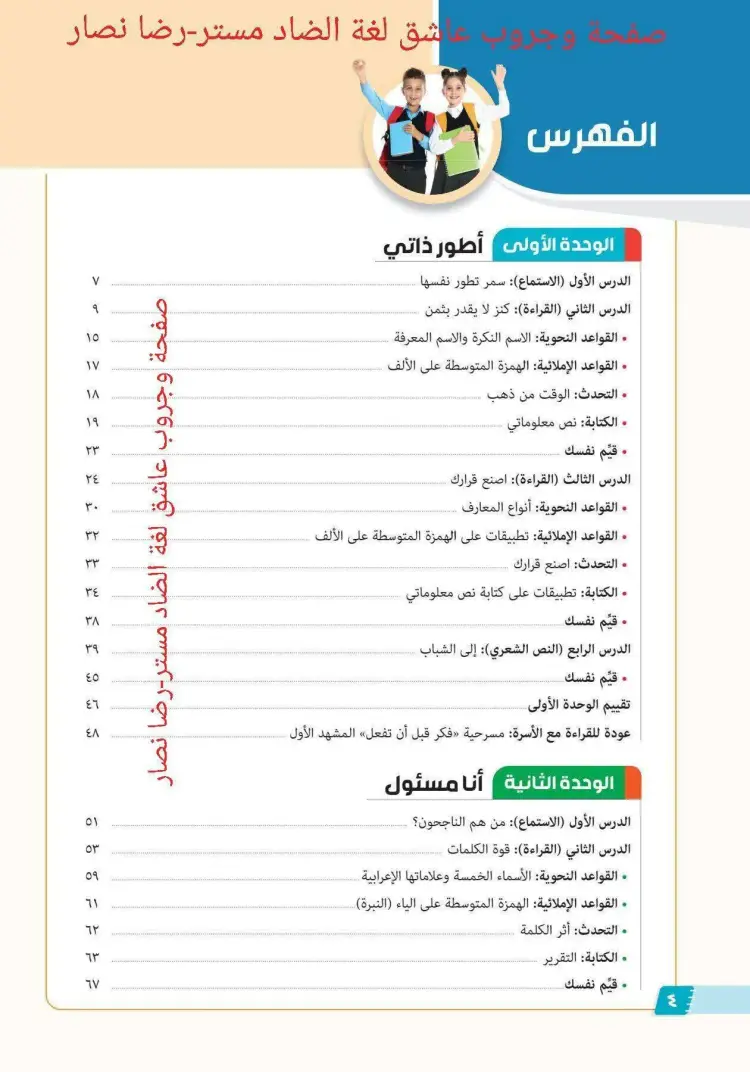 صفحة وجروب عاشق لغة الضاد مستر-رضا نصار
الفهرس
الوحدة الأولى أطور ذاتي
الدرس الأول (الاستماع): سمر تطور نفسها ٧
الدرس الثاني (القراءة): كنز لا يقدر بثمن ٩
• القواعد النحوية: الاسم النكرة والاسم المعرفة ١٥
• القواعد الإملائية: الهمزة المتوسطة على الألف ١٧
• التحدث: الوقت من ذهب ١٨
• الكتابة: نص معلوماتي ١٩
• قيِّم نفسك ٢٣
الدرس الثالث (القراءة): اصنع قرارك ٢٤
• القواعد النحوية: أنواع المعارف ٣٠
• القواعد الإملائية: تطبيقات على الهمزة المتوسطة على الألف ٣٢
• التحدث: اصنع قرارك ٣٣
• الكتابة: تطبيقات على كتابة نص معلوماتي ٣٤
• قيِّم نفسك ٣٨
الدرس الرابع (النص الشعري): إلى الشباب ٣٩
• قيِّم نفسك ٤٥
تقييم الوحدة الأولى ٤٦
عودة للقراءة مع الأسرة: مسرحية «فكر قبل أن تفعل» المشهد الأول ٤٨
صفحة وجروب عاشق لغة الضاد مستر-رضا نصار
الوحدة الثانية أنا مسئول
الدرس الأول (الاستماع): من هم الناجحون؟ ٥١
الدرس الثاني (القراءة): قوة الكلمات ٥٣
• القواعد النحوية: الأسماء الخمسة وعلاماتها الإعرابية ٥٩
• القواعد الإملائية: الهمزة المتوسطة على الياء (النبرة) ٦١
• التحدث: أثر الكلمة ٦٢
• الكتابة: التقرير ٦٣
• قيِّم نفسك ٦٧
٤